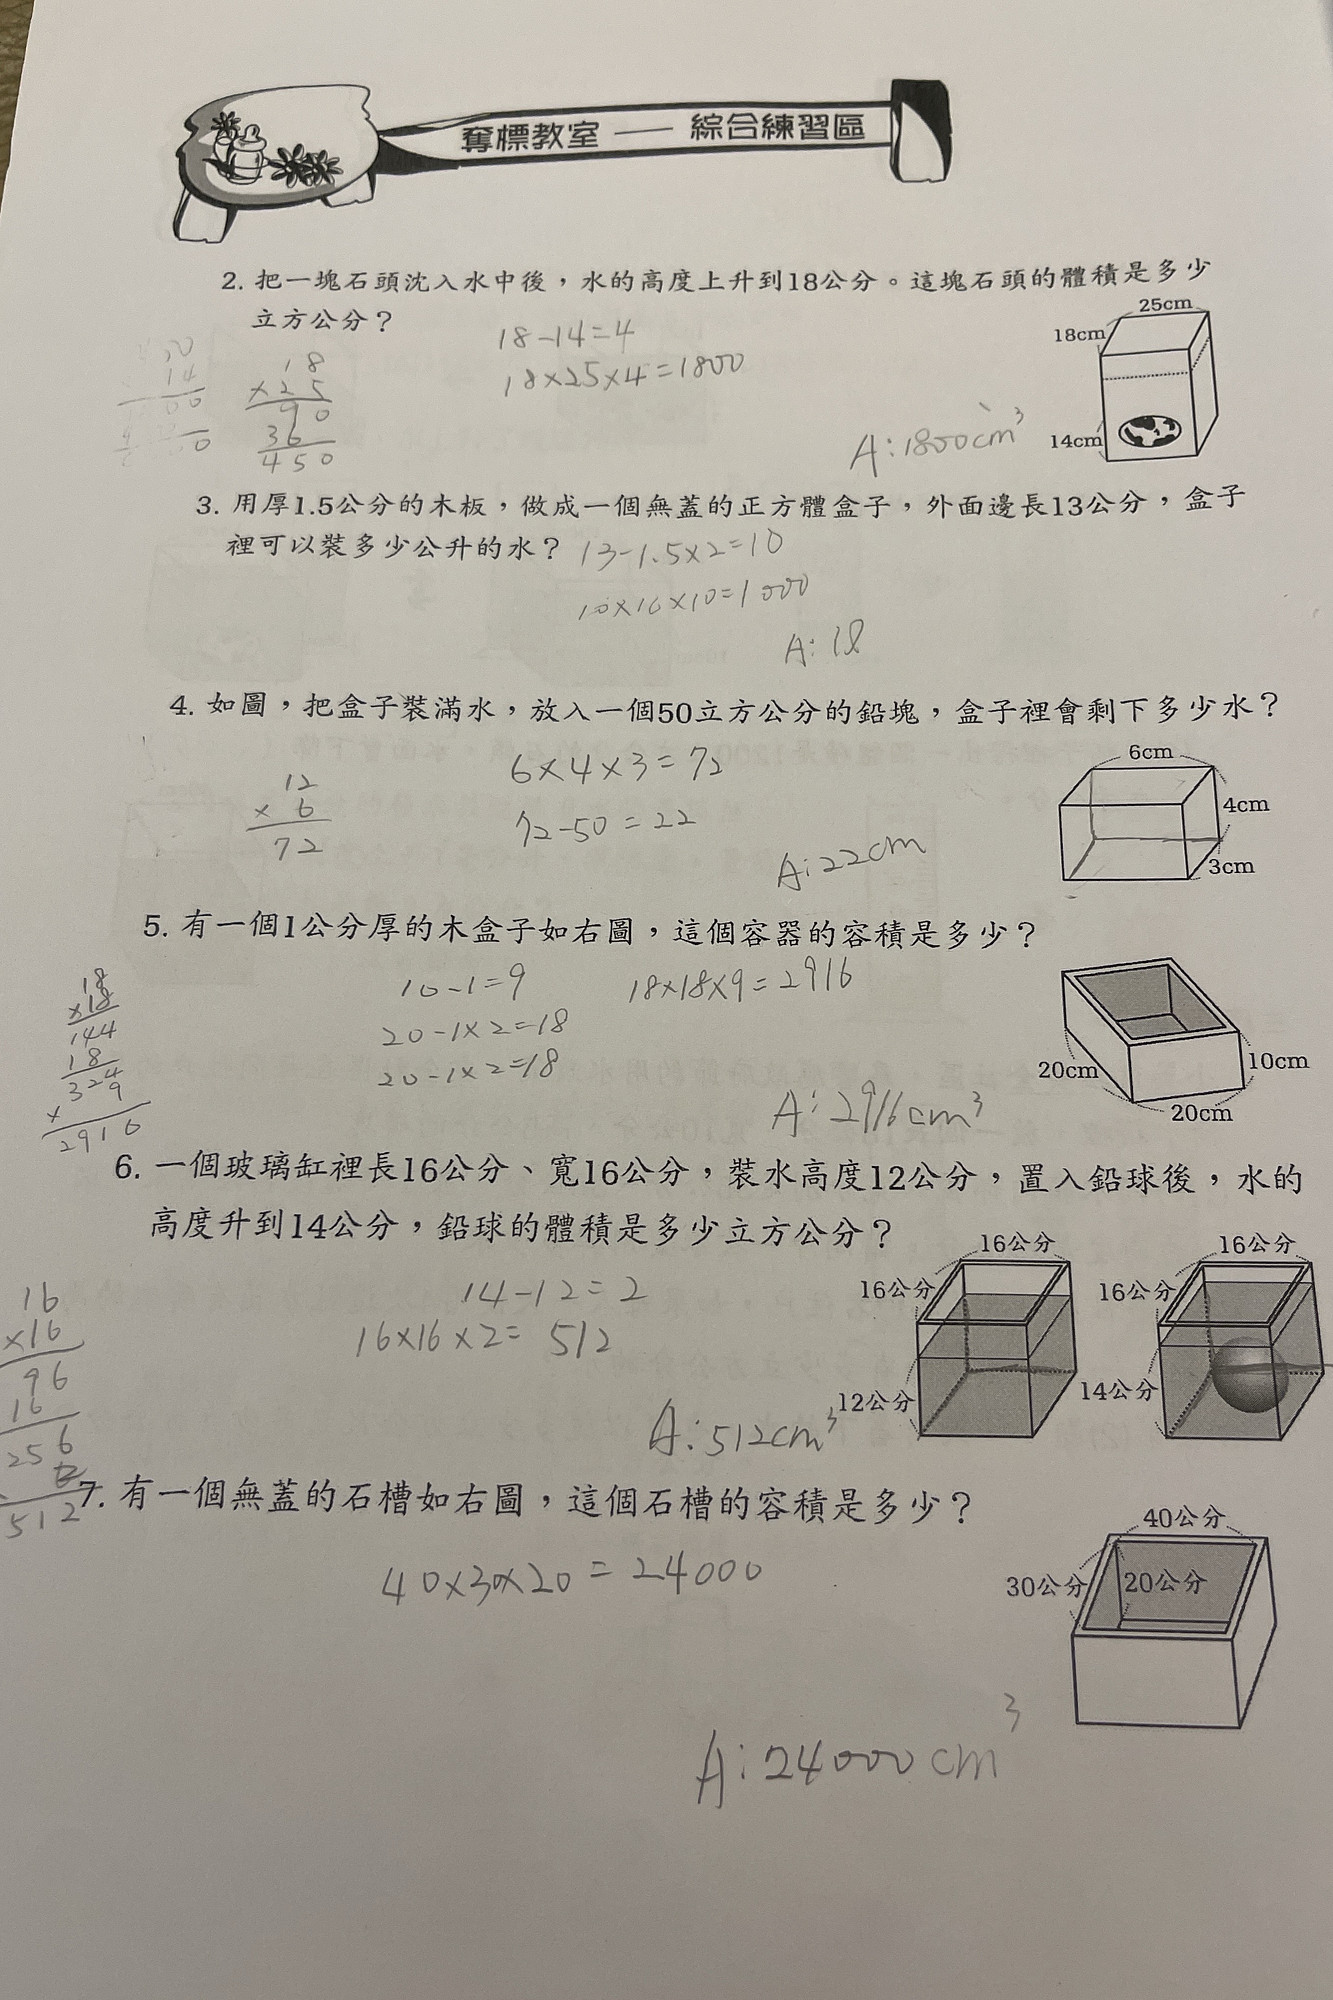 奪標教室 —— 綜合練習區
2. 把一塊石頭沈入水中後，水的高度上升到18公分。這塊石頭的體積是多少
立方公分？
18-14=4
18×25×4=1800
18
×25
90
36
450
A:1800cm³
25cm
18cm
14cm
3. 用厚1.5公分的木板，做成一個無蓋的正方體盒子，外面邊長13公分，盒子
裡可以裝多少公升的水？
13-1.5×2=10
10×10×10=1000
4. 如圖，把盒子裝滿水，放入一個50立方公分的鉛塊，盒子裡會剩下多少水？
12
×6
72
6×4×3=72
72-50=22
A:22cm
6cm
4cm
3cm
5. 有一個1公分厚的木盒子如右圖，這個容器的容積是多少？
10-1=9
18×18×9=2916
20-1×2=18
20-1×2=18
18
×18
144
18
324
×9
2916
A:2916cm³
20cm
10cm
20cm
6. 一個玻璃缸裡長16公分、寬16公分，裝水高度12公分，置入鉛球後，水的
高度升到14公分，鉛球的體積是多少立方公分？
14-12=2
16×16×2=512
16
×16
96
16
256
512
A:512cm³
16公分
16公分
12公分
16公分
16公分
14公分
7. 有一個無蓋的石槽如右圖，這個石槽的容積是多少？
40×30×20=24000
A:24000cm³
40公分
30公分
20公分